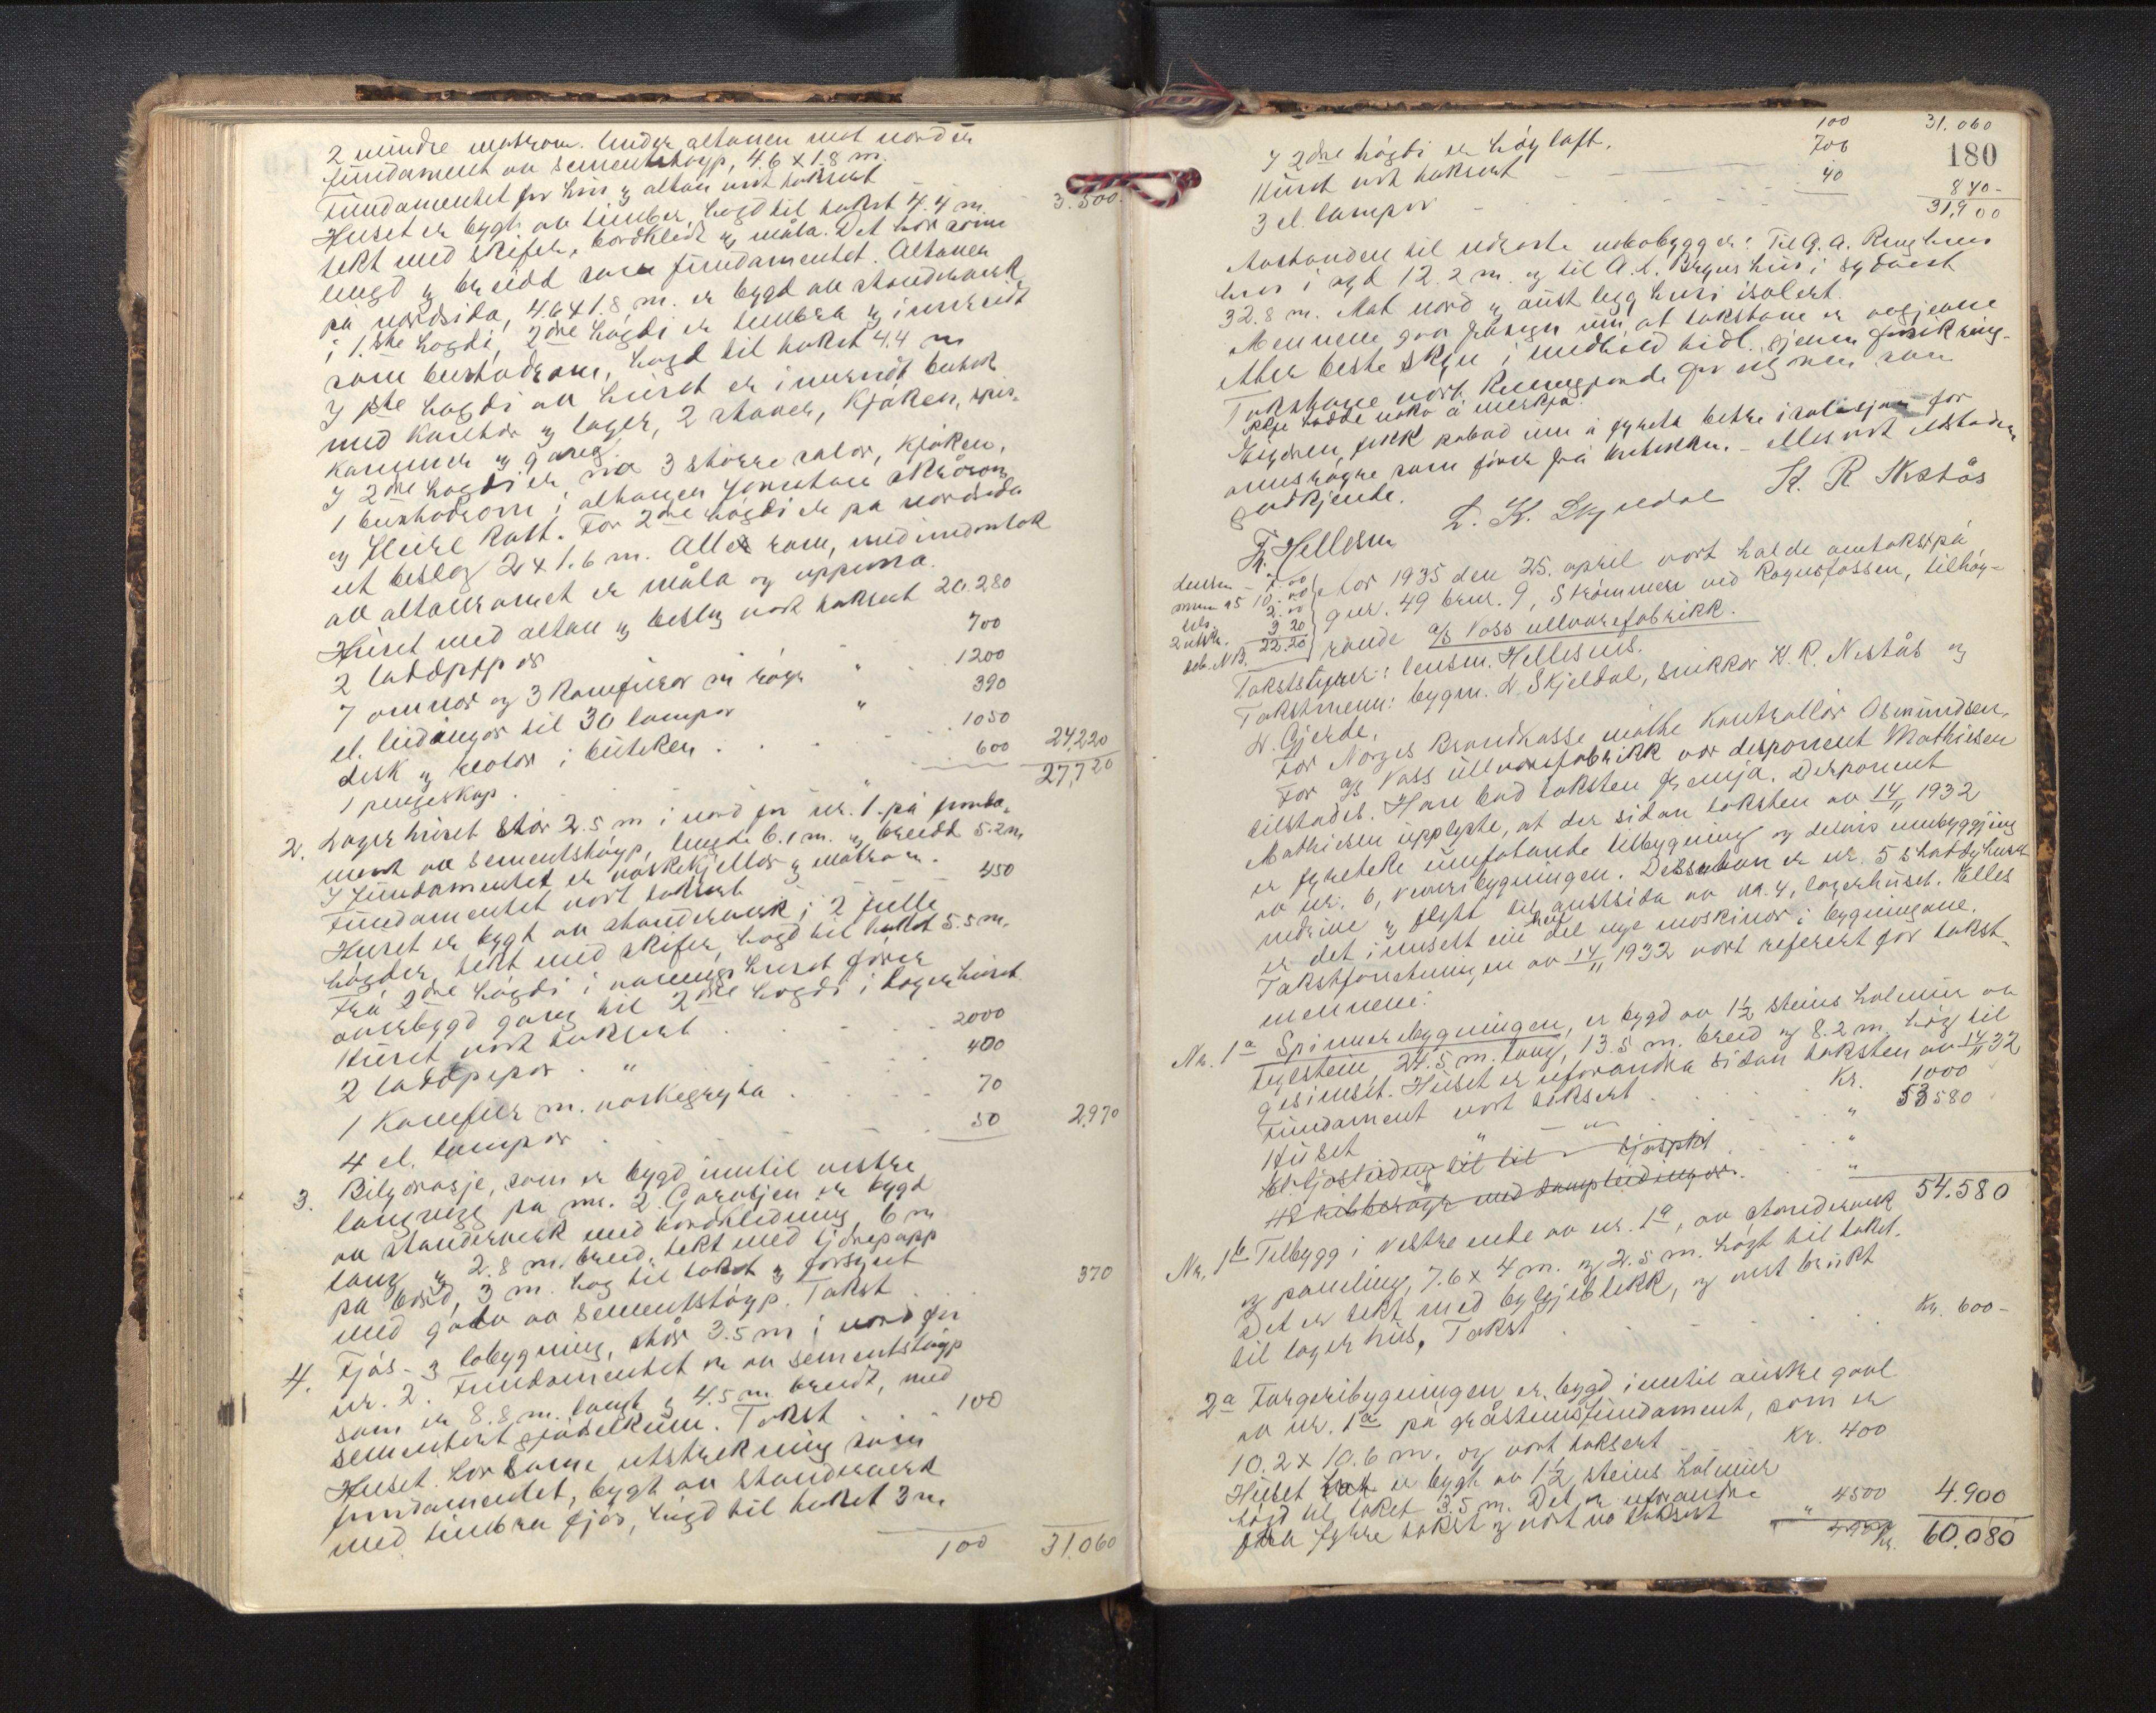 2 mindre matrom. Under altanen mot nord er
fundament av sementstøyp, 4.6 x 1.8 m.
Fundamentet for hus og altan vert taksert 3.500.
Huset er bygt av timber, høgd til taket 7.4 m.
tekt med skifer, bordkledt og måla. Det har same
lengd og breidd som fundamentet. Altanen
på nordsida, 4.6 x 1.8 m. er bygd av standerverk
i 1.ste høgdi, 2dre høgdi er timbra og innreidt
som buskaprom, høgd til taket 4.4 m
I 1ste høgdi av huset er innreidt butikk
med kontor og lager, 2 stover, kjøken, spis-
kammer og gang.
I 2dre høgdi er 3 større salar, kjøken,
1 i altanen
og kott. For 2dre høgdi er på nordsida
eit beslag 2 x 1.6 m. Alle rom, med undantak
av altanromet er måla og uppussa.
Huset med altan og beslag vert taksert 20.280
2 laddpipor 700
7 omnar og 3 komfurar m rør " 1200
el. leidingar til 30 lampor " 390
disk og reolar i butiken 1050
1 pengeskap 600 24.220
27.720
2. Lagerhuset står 2.5 m i nord for nr. 1. på funda-
ment av sementstøyp, lengde 6.1 m. og breidd 5.2 m
I fundamentet er vaskekjellar og matrom.
Fundamentet vert taksert 450
Huset er bygt av standerverk i 2 fulle
høgder, tekt med skifer, høgd til taket 5.5 m.
Frå 2dre høgdi i våningshuset fører
overbygd gang til 2dre høgdi i lagerhuset.
Huset vert taksert 2000
2 laddpipor " 400
1 Komfur m. vaskegryta 70
4 el. lampor 50 2.970
3. Bilgarasje, som er bygd inntil vestre
langvegg på nr. 2. Garasjen er bygd
av standerverk med bordkledning, 6 m
lang og 2.8 m. breid, tekt med tjørepapp
på bord, 3 m. høg til taket og forsynt
med golv av sementstøyp. Takst 370
4. Fjøs- og løbygning, står 3.5 m i nord for
nr. 2. Fundamentet er av sementstøyp
som er 8.8 m. langt og 4.5 m breidt, med
sementert gjødselkum. Takst 100
Huset har same utstrekning som
fundamentet, bygt av standerverk
med timbra fjøs, høgd til taket 3 m
100 31.060
100 31.060
180
I 2dre høgdi er høyloft.
Huset vert taksert 700
3 el. lampor 40 840-
31,900
Avstanden til næraste nabobygg er: Til
hus i syd 12.2 m. og til hus i sydvest
32.8 m. Mot nord og aust ligg husi isolert.
Mennene gav frásegn um, at takstane er avgjevne
etter beste skjøn i medhald
Takstane vart
ikkje hadde noko å merkja.
Eigaren fekk påbod um å syrgja betre isolasjon for
omnsrøyre som fører frå butikken. Elles vart
godkjende.
Fr. Hellesen L. K. Skjeldal K. R. Nestås
Lensm - 7.00
menn à 5 10.00
2.00
2 utskr. 3 20
22.20
År 1935 den 25. april vart halde omtakst på
gnr. 49 bnr. 9, Strømmen ved Rognsfossen, tilhøy-
rande A/S Voss ullvarefabrikk.
Takststyrer: lensm. Hellesnes.
Takstmenn: bygm. L. Skjeldal, snikkar K. R. Nestås og
L. Gjerde.
For Norges Brandkasse møtte kontrollør Osmundsen.
For A/S Voss ullvarefabrikk var disponent Mathiesen
tilstades. Han bad taksten fremja. Disponent
Mathiesen upplyste, at der sidan taksten av 14/11 1932
er fyreteke umfatande tilbygning og delvis umbyggjing
av nr. 6, veveribygningen. Dessutan er nr. 5
nedrive og flytt til austsida av nr. 4, lagerhuset. Elles
er det innsett ein heil del nye maskinor i bygningane.
Takstforretningen av 14/11 1932 vart referert for takst-
mennene:
Nr. 1a Spinneribygningen, er bygd av 1½ steins holmur av
teglstein, 24.5 m. lang, 13.5 m. breid og 8.2 m. høg til
gesimset. Huset er uforandra sidan taksten av 14/11 32
Fundament vert taksert Kr. 1000
Huset " " 53580
54.580
Nr. 1b Tilbygg i vestre ende av nr. 1a, av standerverk
og paneling, 7.6 x 4 m. og 2.5 m. høgt til taket.
Det er tekt med bylgjeblekk, og vert brukt
til lagerhus, Takst Kr. 600-
2a Fargeribygningen er bygd inntil austre gavl
av nr. 1a på gråsteinsfundament, som er
10.2 x 10.6 m. og vert taksert Kr. 400
Huset er bygt av 1½ steins holmur
høgd til taket 3.5 m. Det er uforandra
frå fyrre takst og vert no taksert " 4500 4.900
Kr. 60.080